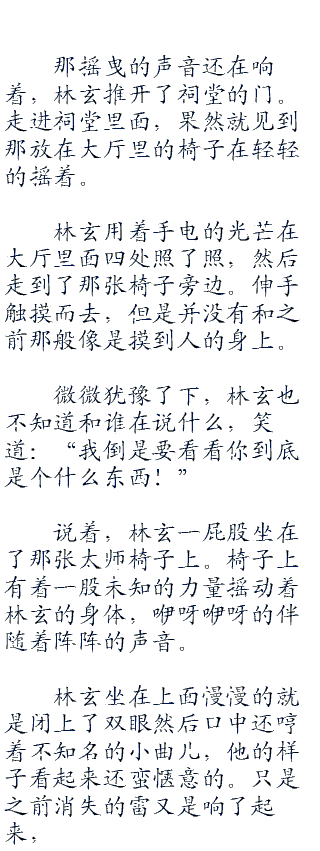 那摇曳的声音还在响
着，林玄推开了祠堂的门。
走进祠堂里面，果然就见到
那放在大厅里的椅子在轻轻
的摇着。
林玄用着手电的光芒在
大厅里面四处照了照，然后
走到了那张椅子旁边。伸手
触摸而去，但是并没有和之
前那般像是摸到人的身上。
微微犹豫了下，林玄也
不知道和谁在说什么，笑
道：“我倒是要看看你到底
是个什么东西！”
说着，林玄一屁股坐在
了那张太师椅子上。椅子上
有着一股未知的力量摇动着
林玄的身体，咿呀咿呀的伴
随着阵阵的声音。
林玄坐在上面漫漫的就
是闭上了双眼然后口中还哼
着不知名的小曲儿，他的样
子看起来还蛮惬意的。只是
之前消失的雷又是响了起
来，